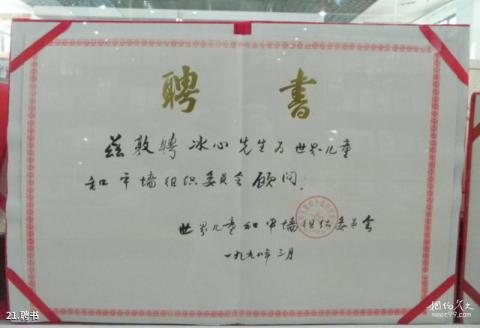 聘書
兹敦聘冰心先生为世界儿童
和平墙组织委员会顾问!
世界儿童和平墙组织委员会
一九九 三月
21.聘书
相约久久
meet99.com